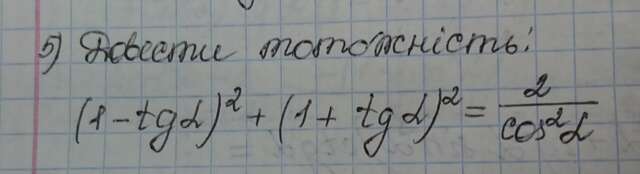 5) Довести тотожність:
(1 - tg α)² + (1 + tg α)² = 2/cos²α